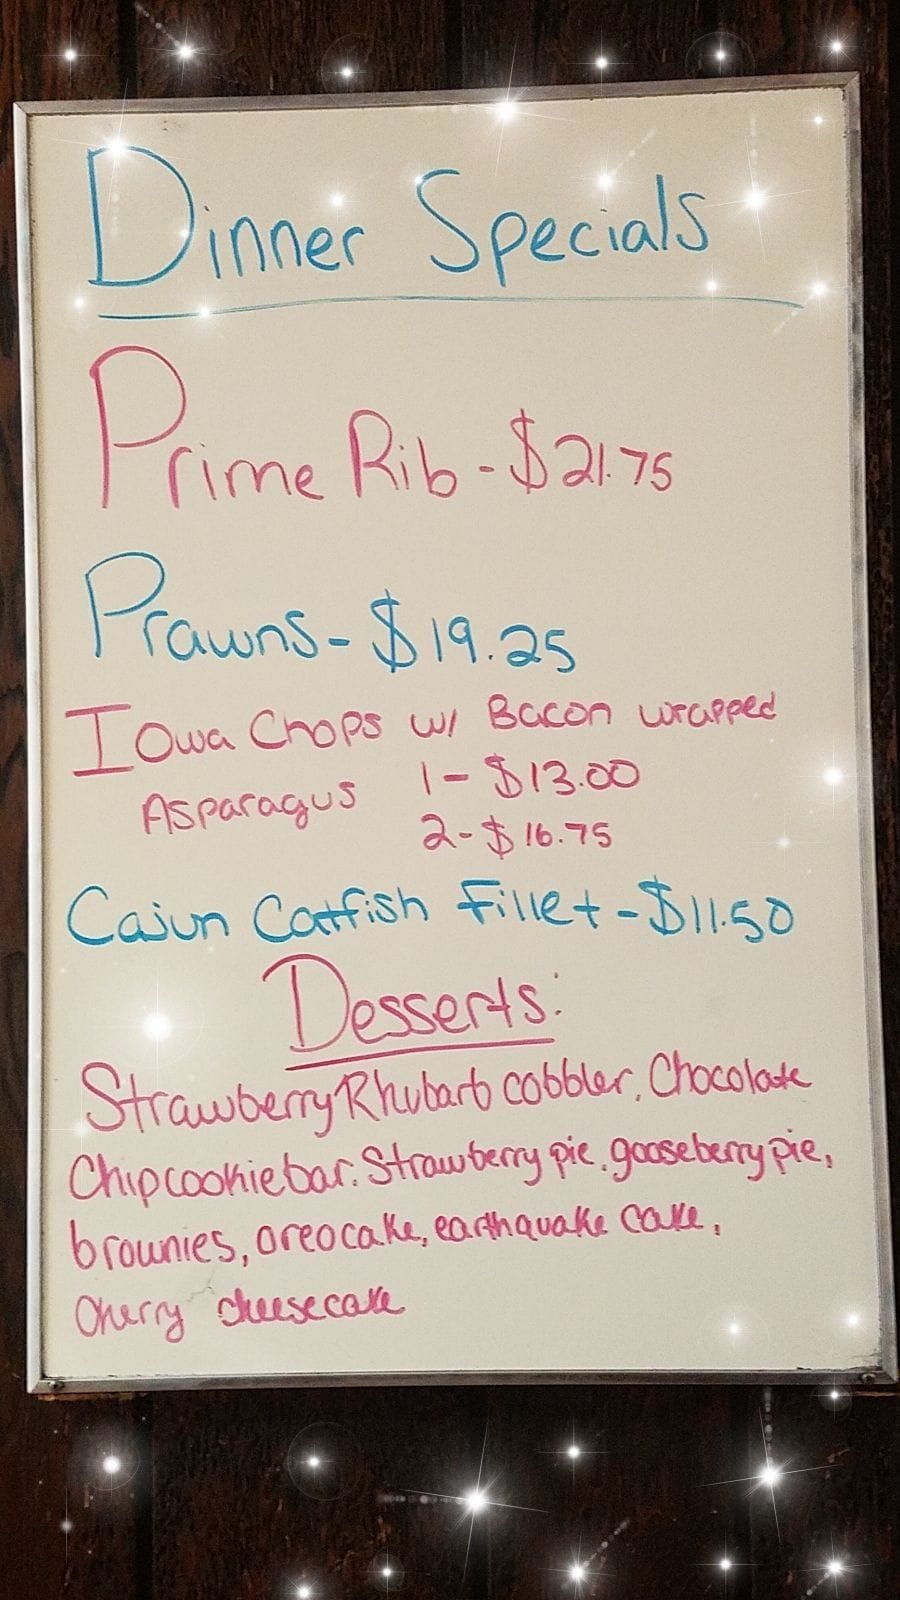 Dinner Specials
Prime Rib - $21.75
Prawns - $19.25
Iowa Chops w/ Bacon wrapped
Asparagus 1 - $13.00
2 - $16.75
Cajun Catfish Fillet - $11.50
Desserts:
Strawberry Rhubarb cobbler, Chocolate
Chip cookie bar, Strawberry pie, gooseberry pie,
brownies, oreo cake, earthquake cake,
Cherry cheesecake